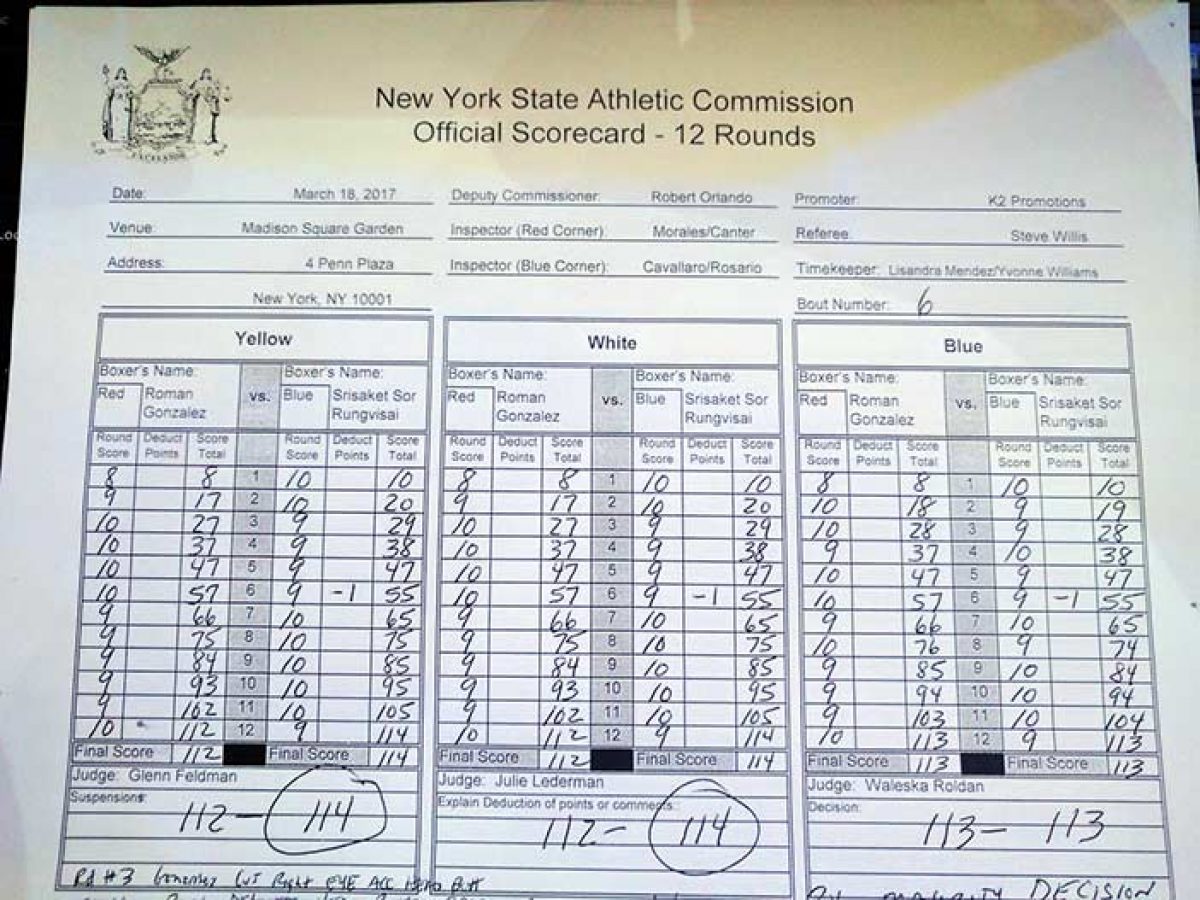 EXCELSIOR
New York State Athletic Commission
Official Scorecard - 12 Rounds
Date: March 18, 2017 Deputy Commissioner: Robert Orlando Promoter: K2 Promotions
Venue: Madison Square Garden Inspector (Red Corner): Morales/Canter Referee: Steve Willis
Address: 4 Penn Plaza Inspector (Blue Corner): Cavallaro/Rosario Timekeeper: Lisandra Mendez/Yvonne Williams
New York, NY 10001 Bout Number: 6
Yellow White Blue
Boxer's Name: Boxer's Name: Boxer's Name: Boxer's Name: Boxer's Name: Boxer's Name:
Red Roman vs. Blue Srisaket Sor Red Roman vs. Blue Srisaket Sor Red Roman vs. Blue Srisaket Sor
Gonzalez Rungvisai Gonzalez Rungvisai Gonzalez Rungvisai
Round Deduct Score Round Deduct Score Round Deduct Score Round Deduct Score Round Deduct Score Round Deduct Score
Score Points Total Score Points Total Score Points Total Score Points Total Score Points Total Score Points Total
8 8 1 10 10 8 8 1 10 10 8 8 1 10 10
9 17 2 10 20 9 17 2 10 20 10 18 2 9 19
10 27 3 9 29 10 27 3 9 29 10 28 3 9 28
10 37 4 9 38 10 37 4 9 38 9 37 4 10 38
10 47 5 9 47 10 47 5 9 47 10 47 5 9 47
10 57 6 9 -1 55 10 57 6 9 -1 55 10 57 6 9 -1 55
9 66 7 10 65 9 66 7 10 65 9 66 7 10 65
9 75 8 10 75 9 75 8 10 75 10 76 8 9 74
9 84 9 10 85 9 84 9 10 85 9 85 9 10 84
9 93 10 10 95 9 93 10 10 95 9 94 10 10 94
9 102 11 10 105 9 102 11 10 105 9 103 11 10 104
10 112 12 9 114 10 112 12 9 114 10 113 12 9 113
Final Score 112 Final Score 114 Final Score 112 Final Score 114 Final Score 113 Final Score 113
Judge: Glenn Feldman Judge: Julie Lederman Judge: Waleska Roldan
Suspensions: Explain Deduction of points or comments: Decision:
112 - 114 112 - 114 113 - 113
Rd #3 Gonzalez Cut Right EYE ACC HEAD Butt
MAJORITY DECISION